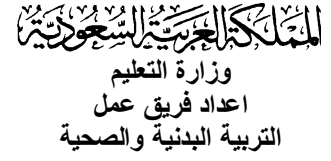 المملكة العربية السعودية
وزارة التعليم
اعداد فريق عمل
التربية البدنية والصحية